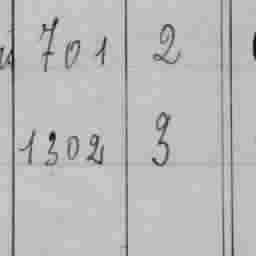 701 2
1302 3